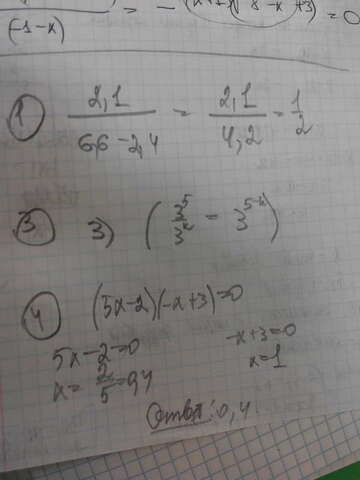 (-1-x) = - (8-x+3) = 0
① 2,1 / 6,6-2,4 = 2,1 / 4,2 = 1/2
③ 3) (3^5 / 3^x = 3^(5-x))
④ (5x-2)(-x+3)=0
5x-2=0 -x+3=0
x = 2/5 = 0,4 x=1
Ответ: 0,4